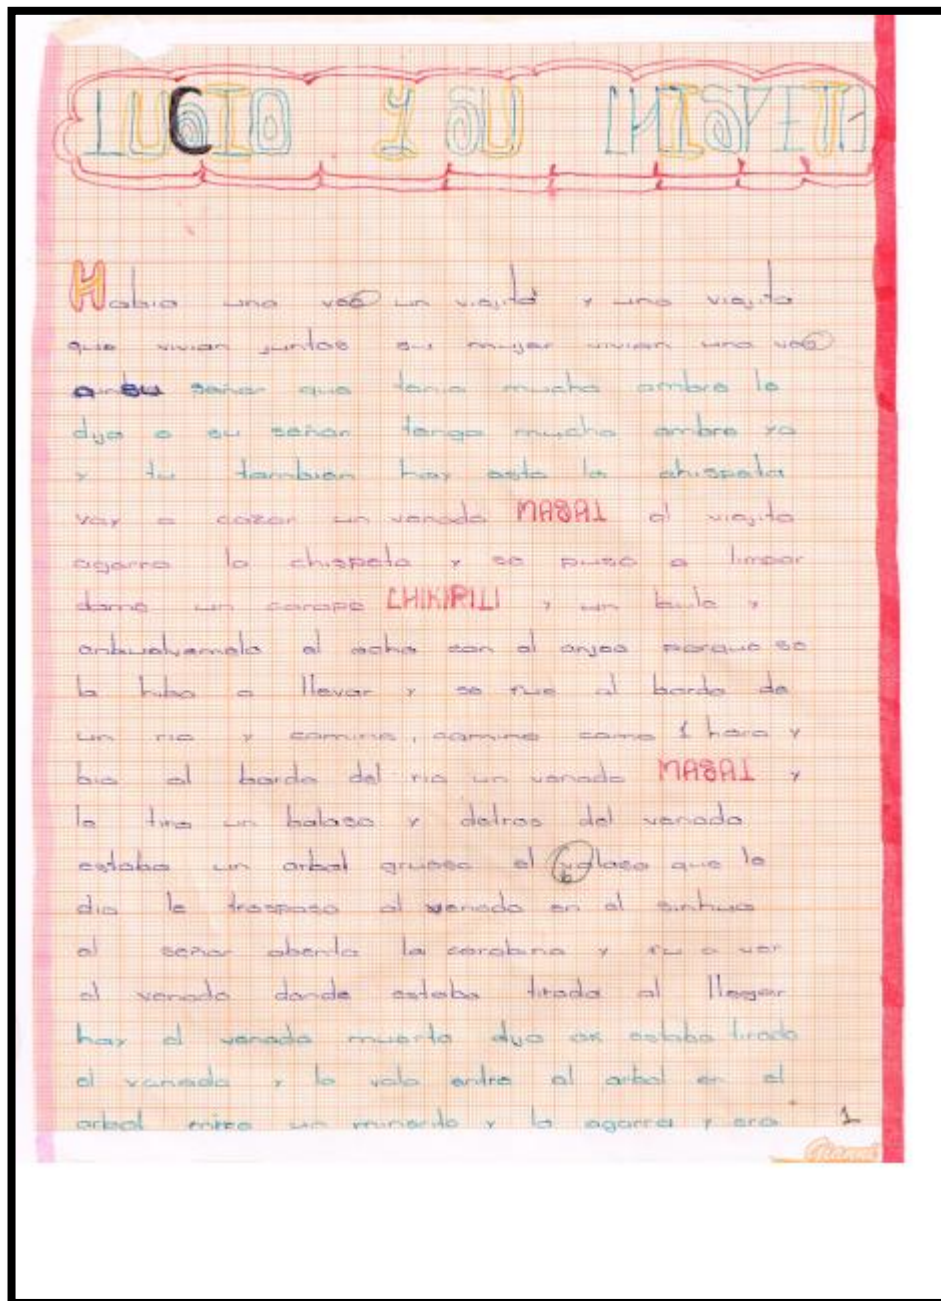 LUCIO Y SU CHISPETA
Habia una ves un viejito y una viejita
que vivian juntos su mujer vivian una ves
su señor que tenia mucho ambre le
dijo a su señor tengo mucho ambre yo
y tu tambien hay esta la chispeta
voy a cazar un venado MASAT el viejito
agarro la chispeta y se puso a limpar
dame un carape CHIKIPILI y un bule y
anbuelvemela el acha con el anjeo porque se
la hiba a llevar y se fue al borde de
un rio y camino, camino como 1 hora y
bio al borde del rio un venado MASAT y
le tiro un balaso y detras del venado
estaba un arbol grueso el valaso que le
dio le traspaso al venado en el
el señor abento la carabina y fu a ver
el venado donde estaba tirado al llegar
hay el venado muerto dijo ok estaba tirado
el vanado y la vala entro al arbol en el
arbol miro un y lo agarra y era 1
Gianni